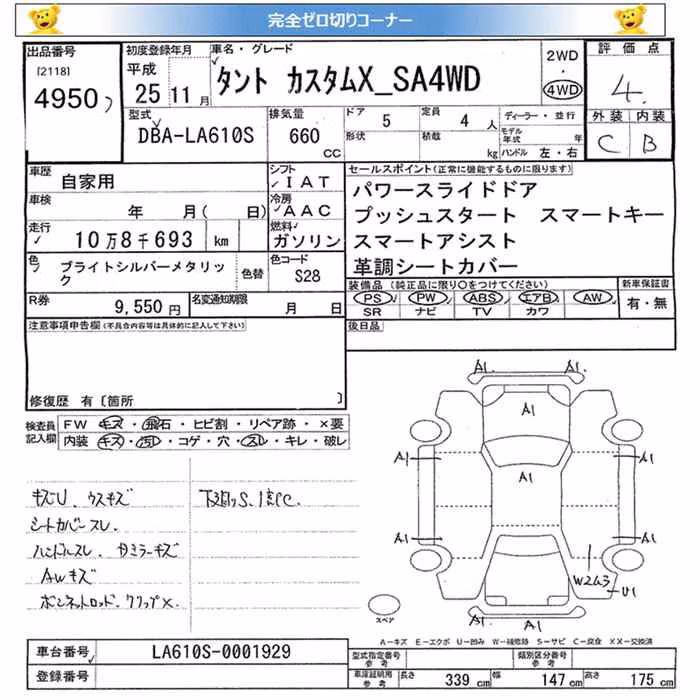 完全ゼロ切りコーナー
出品番号
[2118]
4950
初度登録年月
平成
25 11月
車名・グレード
タント カスタムX_SA4WD
2WD
・
4WD
評価点
4
型式
DBA-LA610S
排気量
660
CC
ドア 5
形状
定員 4 人
積載 kg
ディーラー・並行
モデル年式 年
ハンドル 左・右
外装 内装
C B
車歴
自家用
シフト
IAT
車検
年 月( 日)
冷房
AAC
走行
10万8千693 km
燃料
ガソリン
色
ブライトシルバーメタリック
色替
色コード
S28
R券
9,550円
名変通知期限
月 日
セールスポイント(正常に機能するものに限ります)
パワースライドドア
プッシュスタート スマートキー
スマートアシスト
革調シートカバー
装備品(純正品に限り○をつけてください)
PS PW ABS エアB AW
SR ナビ TV カワ
新車保証書
有・無
注意事項申告欄(不具合内容等は具体的に記入して下さい)
後日品
修復歴 有〔箇所 〕
検査員
記入欄
FW キズ・飛石・ヒビ割・リペア跡・×要
内装 キズ・汚レ・コゲ・穴・スレ・キレ・破レ
キズU、ウスキズ
シートカバースレ、
ハンドルスレ、
AWキズ
ボンネットロッド、クリップ×、
下廻りS、
A1 A1
A1
A1 A1
A1
A1 A1
W2 U3
U1
A1 A1
A1
スペア
A-キズ E-エクボ U-凹み W-補修跡 S-サビ C-腐食 XX-交換済
車台番号
LA610S-0001929
登録番号
型式指定番号
参考
類別区分番号
参考
車庫証明用
参考
長さ 339 cm 幅 147 cm 高さ 175 cm